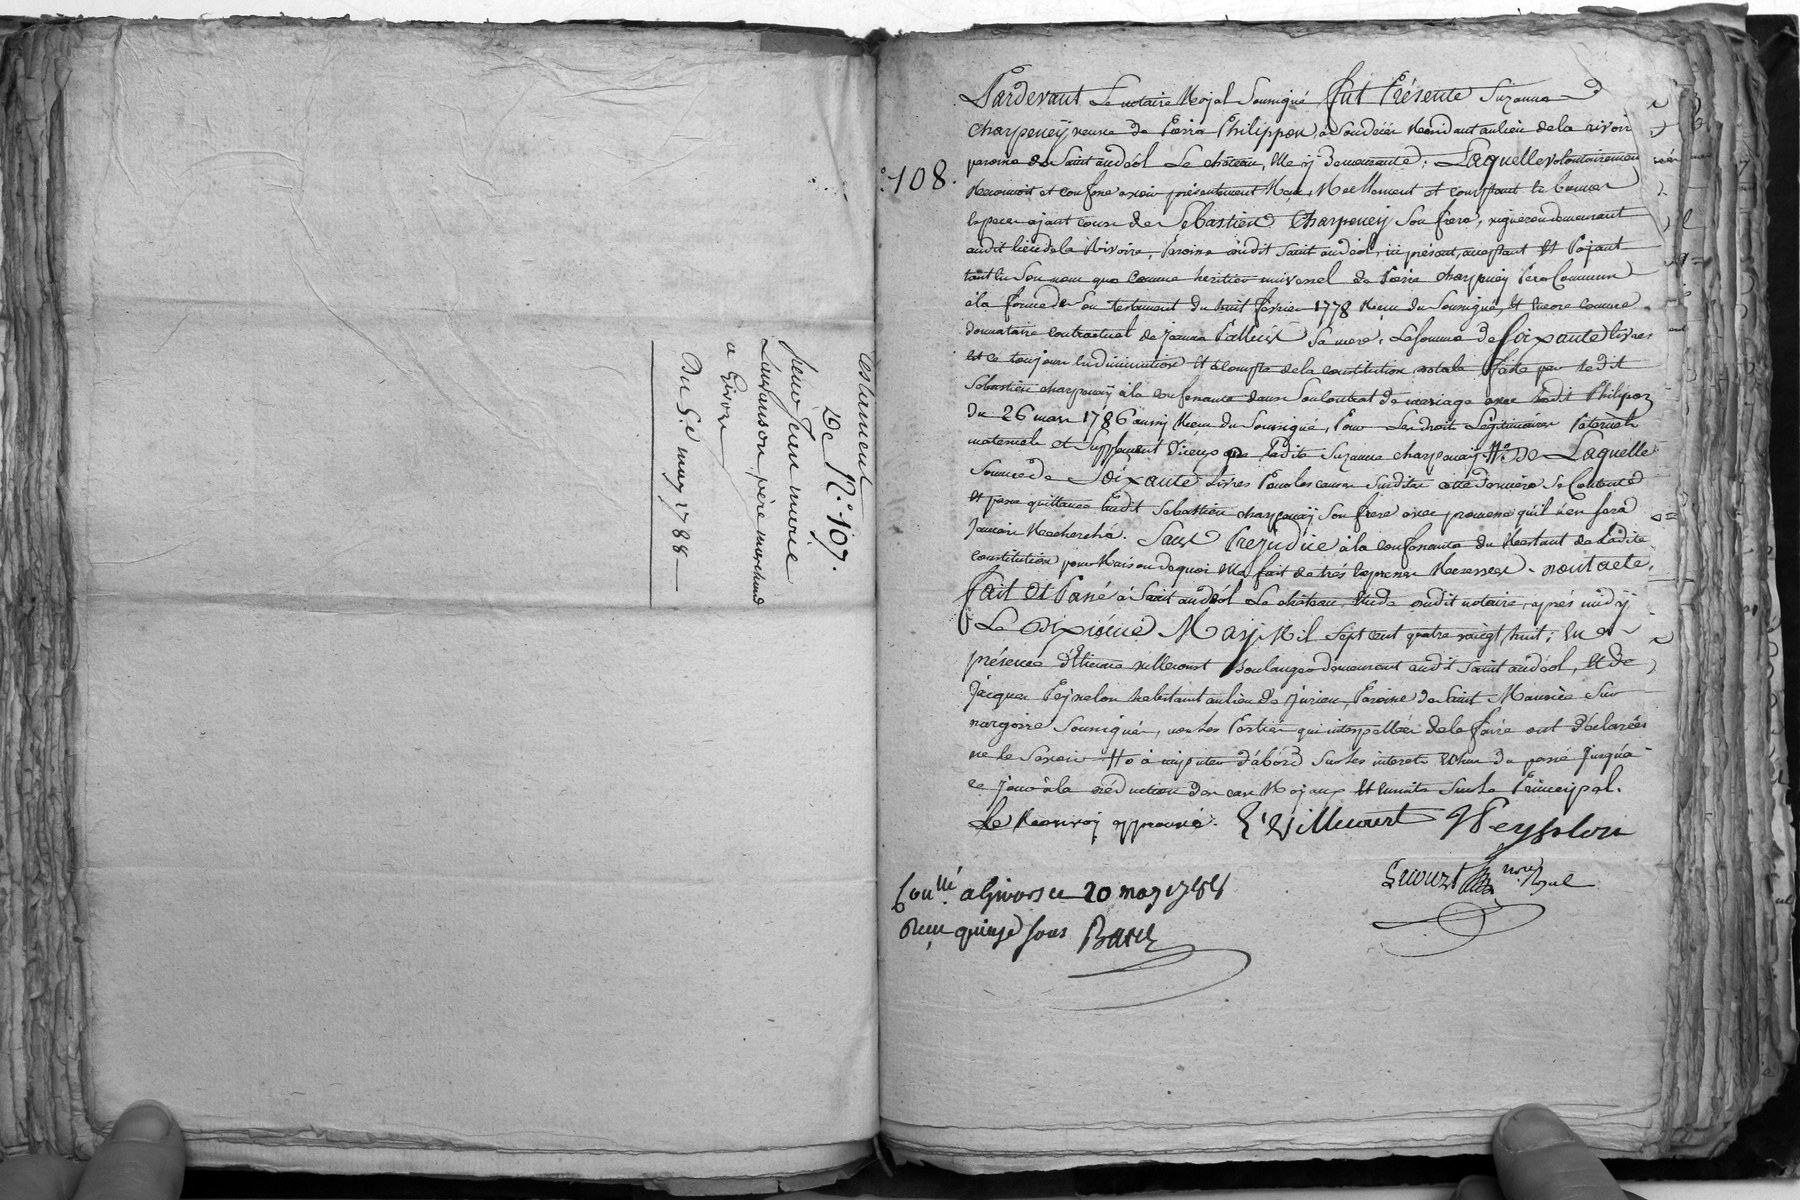 Testament
De N.° 107.
sieur Jean marie
Lanfanson père marchand
a Givors
Du 5.e may 1788
N.° 108.
Pardevant Le notaire Royal Soussigné fut Présente Suzanne
Charpeneÿ veuve de Pierre Philippon, Residant au lieu de la rivoire
paroisse de Saint andéol Le château, elle y demeurante; Laquelle volontairement
Reconnoit et confesse avoir présentement Reçu Réellement et comptant en bonnes
Especes ayant cours de Sebastien Charpeneÿ Son frere, vigneron demeurant
audit lieu de la Rivoire, Paroisse dudit Saint andéol, ici présent, acceptant Et Payant
tant en Son nom que Comme heritier universel de Pierre charpeneÿ Pere Commun
à la forme de Son testament du huit fevrier 1778 Recu du Soussigné, Et encore comme
donnataire contractuel de Jeanne Palluis Sa mere, La Somme de Soixante livres
Et ce toujours En diminution Et à compte de la constitution dotale Faite par ledit
Sébastien charpeneÿ à la confessante dans Son Contrat de mariage avec ledit Philipon
du 26 mars 1786 aussy Recu du Soussigné, Pour Les droits Légitimaires Paternels
maternels et Supplement d'iceux de Ladite Suzanne charpeneÿ #. De Laquelle
Somme de Soixante Livres Pour les causes Susdites cette derniere Se Contente
Et passe quittance audit Sebastien charpeneÿ Son frere avec promesse qu'il n'en sera
Jamais Recherché. Sans Préjudice à la confessante du Restant de Ladite
constitution pour Raison de quoi Elle fait de très Expresses Reserves. Dont acte.
Fait Et Passé à Saint andéol Le château, Etude dudit notaire, après midÿ
Le Dixième Maÿ Mil Sept cent quatre vingt huit; En
présence d'Etienne villecourt Boulanger demeurant audit Saint andéol, Et de
Jacques Peysselon habitant au lieu de Jurieu, Paroisse de Saint Maurice Sur
Dargoire Soussignés, non les Parties qui interpellées de le faire ont déclarées
ne le Savoir # à imputer d'abord Sur les interets Echus du passé Jusqu'à
ce Jour à la déduction des cas Royaux Et Ensuite Sur Le Principal.
Le Renvoy approuvé. E: Villecourt Peysslon
not.re Royal
Con.llé a Givors ce 20 may 1788
Reçu quinze sous Barel